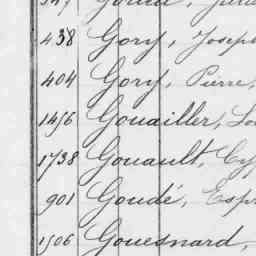 438 Gory, Joseph
404 Gory, Pierre,
1456 Gouailler, Lo
1738 Gouault, Cy
901 Goudé, Esp
1506 Gouesnard,